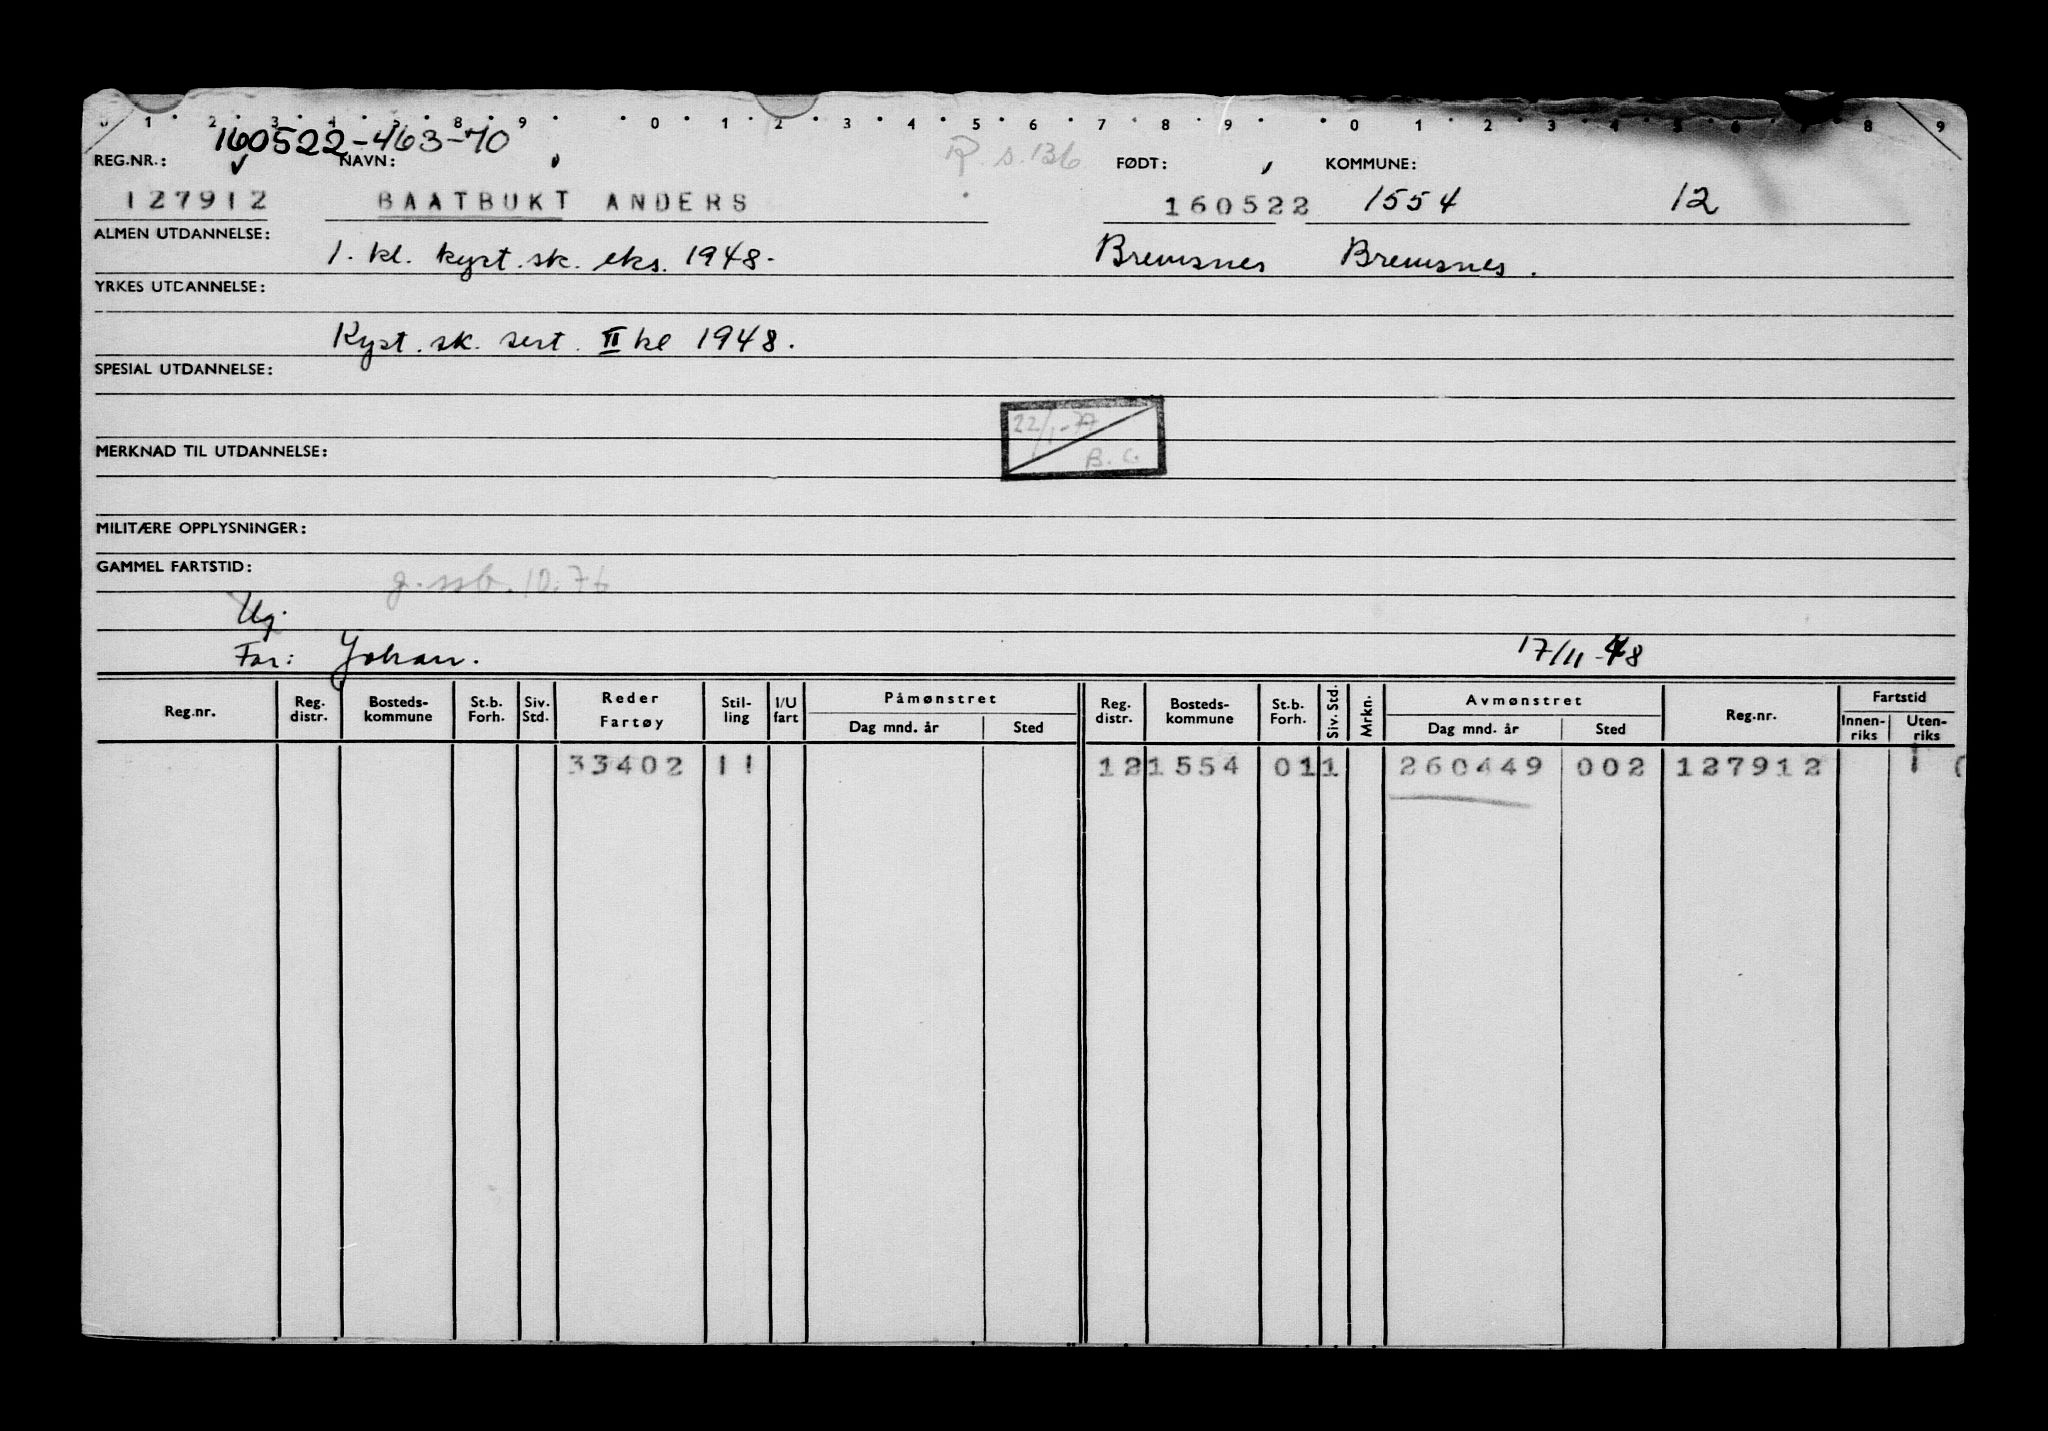 0 1 2 3 4 5 8 9 0 1 2 3 4 5 6 7 8 9 0 1 2 3 4 5 6 7 8 9
160522-463-70
R. s. 136
REG.NR.: NAVN: FØDT: KOMMUNE:
127912 BAATBUKT ANDERS 160522 1554 12
ALMEN UTDANNELSE: 1. kl. kyst.sk. eks. 1948. Bremsnes Bremsnes.
YRKES UTDANNELSE:
Kyst.sk. sert. II kl 1948.
SPESIAL UTDANNELSE:
22/1-77
B. C.
MERKNAD TIL UTDANNELSE:
MILITÆRE OPPLYSNINGER:
GAMMEL FARTSTID:
g. ssb. 10.76
Ug.
Far: Johan. 17/11-48
Reg.nr. Reg. distr. Bosteds-kommune St.b. Forh. Siv. Std. Reder Fartøy Stil-ling I/U fart Påmønstret Dag mnd. år Sted Reg. distr. Bosteds-kommune St.b. Forh. Siv. Std. Mrkn. Avmønstret Dag mnd. år Sted Reg.nr. Fartstid Innen-riks Uten-riks
33402 11 12 1554 01 1 260449 002 127912 1